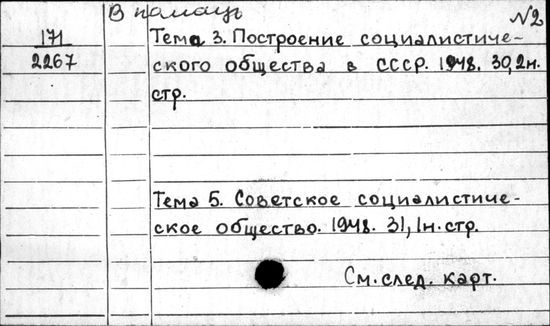 В помощь
№2
171
2267
Тема 3. Построение социалистиче-
ского общества в СССР. 1948. 30,2н.
стр.
Тема 5. Советское социалистиче-
ское общество. 1948. 31,1н.стр.
См. след. карт.